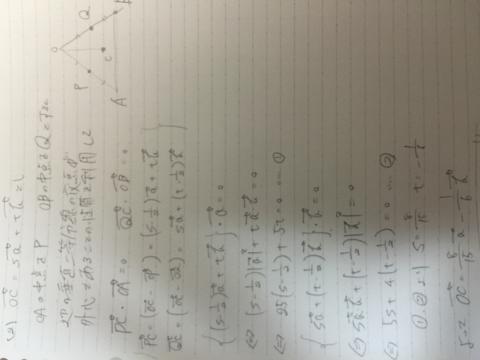 (2) OC = sa + tb とし
OAの中点をP OBの中点をQとする
2つの垂直二等分線の交点が
外心である この性質を利用して
PC・OA = 0 QC・OB = 0
PC = (OC - OP) = (s-1/2)a + tb
QC = (OC - OQ) = sa + (t-1/2)b
{(s-1/2)a + tb}・a = 0
⇔ (s-1/2)|a|² + ta・b = 0
⇔ 25(s-1/2) + 5t = 0 … ①
{sa + (t-1/2)b}・b = 0
⇔ sa・b + (t-1/2)|b|² = 0
⇔ 5s + 4(t-1/2) = 0 … ②
①,②より s = 8/15 t = -1/6
よって OC = 8/15 a - 1/6 b
O
P
Q
C
A
B